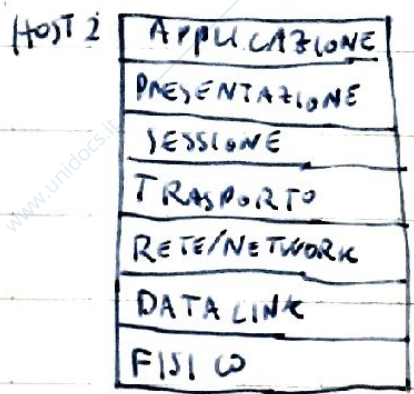 HOST 2
APPLICAZIONE
PRESENTAZIONE
SESSIONE
TRASPORTO
RETE/NETWORK
DATA LINK
FISICO
www.unidocs.it